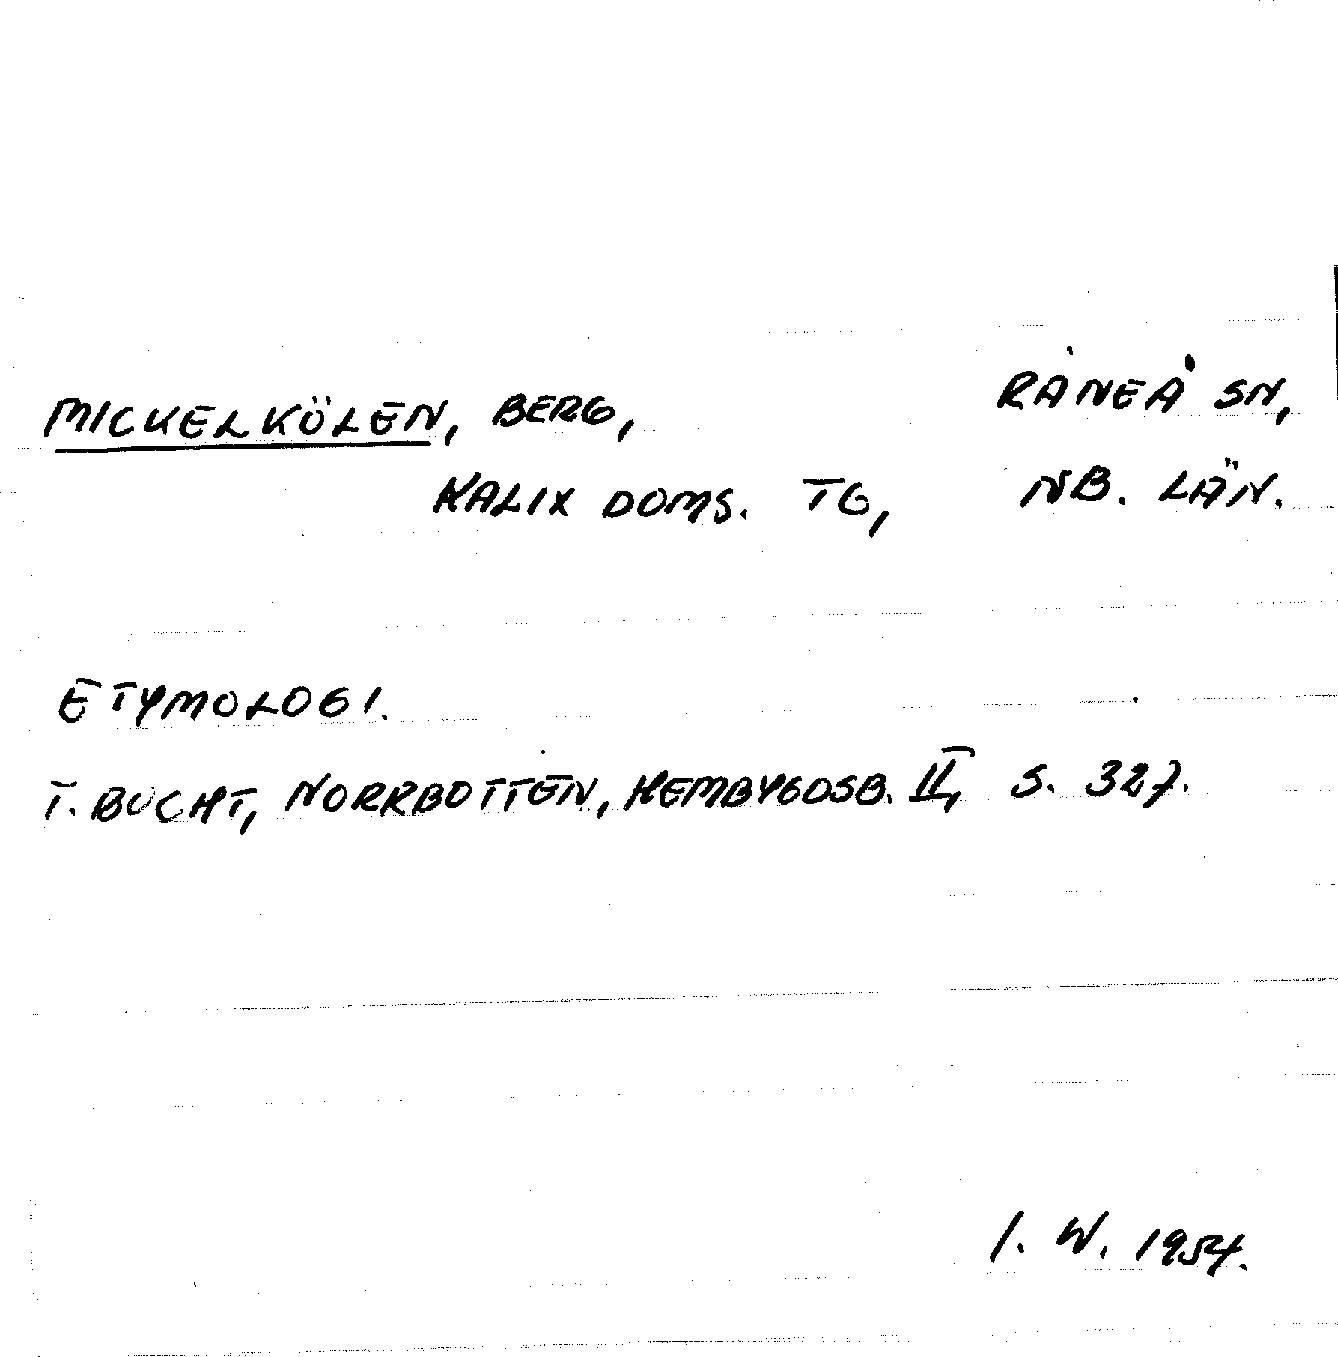 MICKELKÖLEN, BERG, RÅNEÅ SN,
KALIX DOMS. TG, NB. LÄN.
ETYMOLOGI.
T. BUCHT, NORRBOTTEN, HEMBYGDSB. II, S. 327.
I. W. 1954.